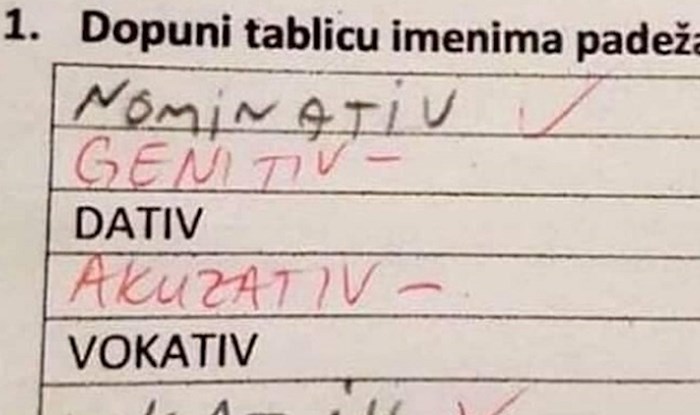 1. Dopuni tablicu imenima padeža
NOMiNATiV
GENITIV -
DATIV
AKUZATIV -
VOKATIV